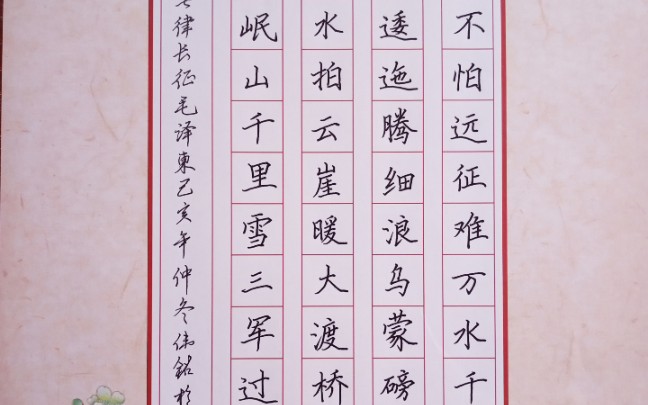 不怕远征难万水千
逶迤腾细浪乌蒙磅
水拍云崖暖大渡桥
岷山千里雪三军过
律长征毛泽東己亥年仲冬伟銘